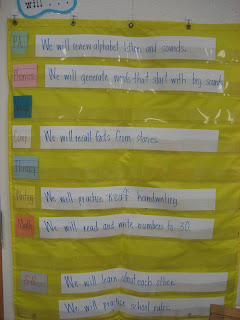 will . . .
P.A.
We will review alphabet letters and sounds.
Phonics
We will generate words that start with beg. sounds
Comp.
We will recall facts from stories.
Fluency
Writing
We will practice neat handwriting
Math
We will read and write numbers to 30.
We will learn about each other.
We will practice school rules.